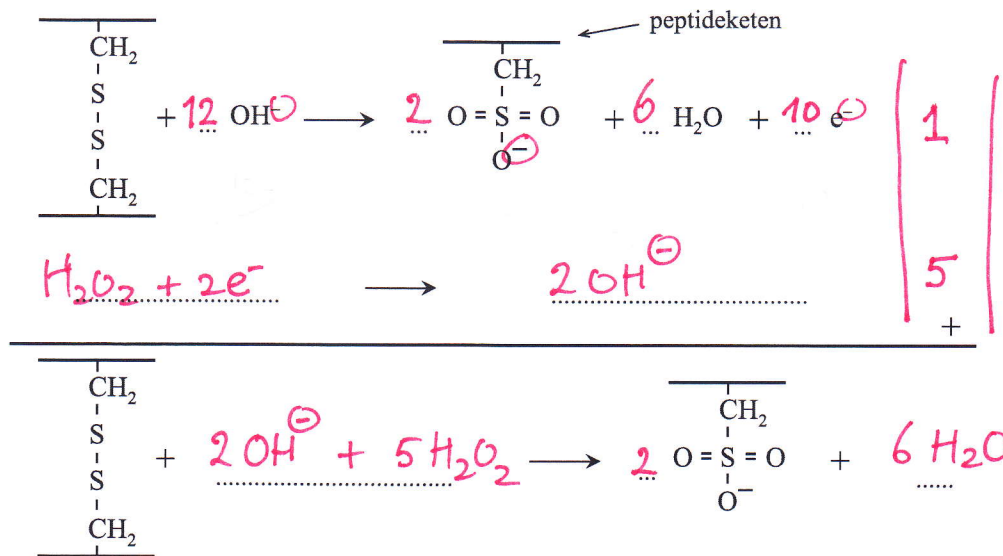 peptideketen
CH₂
S
S
CH₂
+ 12 OH⁻ → 2
CH₂
O = S = O
O⁻
+ 6 H₂O + 10 e⁻
1
H₂O₂ + 2e⁻ → 2 OH⁻
5
+
CH₂
S
S
CH₂
+ 2 OH⁻ + 5 H₂O₂ → 2
CH₂
O = S = O
O⁻
+ 6 H₂O